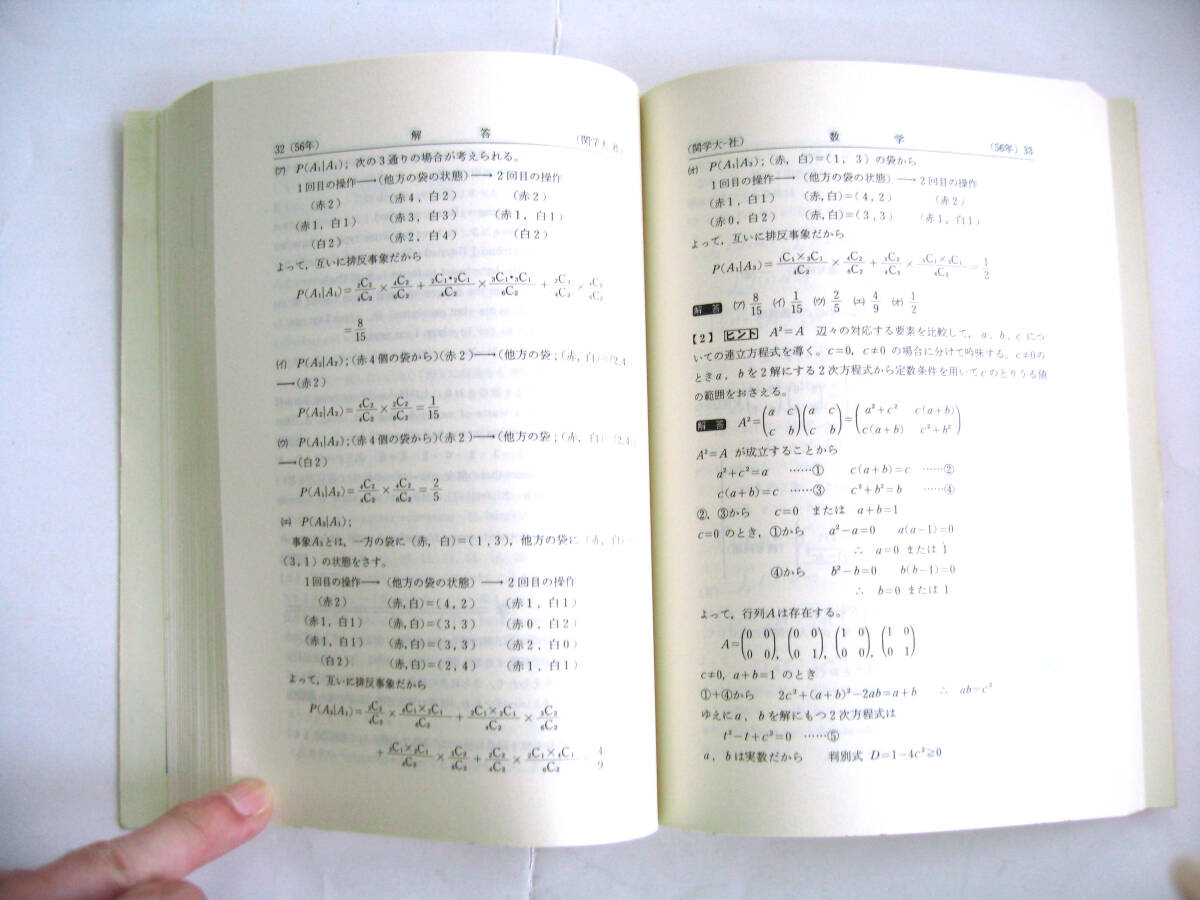 32 (56年) 解答 (関学大-社)
(ア) P(A₁|A₁); 次の3通りの場合が考えられる。
1回目の操作→(他方の袋の状態)→2回目の操作
(赤2) (赤4, 白2) (赤2)
(赤1, 白1) (赤3, 白3) (赤1, 白1)
(白2) (赤2, 白4) (白2)
よって, 互いに排反事象だから
P(A₁|A₁)=₂C₂/₄C₂×₄C₂/₆C₂+₂C₁・₂C₁/₄C₂×₃C₁・₃C₁/₆C₂+₂C₂/₄C₂×₄C₂/₆C₂
=8/15
(イ) P(A₂|A₂);(赤4個の袋から)(赤2)→(他方の袋;(赤, 白)=(2,4
→(赤2)
P(A₂|A₂)=₄C₂/₄C₂×₂C₂/₆C₂=1/15
(ウ) P(A₁|A₂);(赤4個の袋から)(赤2)→(他方の袋;(赤, 白)=(2,4
→(白2)
P(A₁|A₂)=₄C₂/₄C₂×₄C₂/₆C₂=2/5
(エ) P(A₃|A₁);
事象A₃とは, 一方の袋に(赤, 白)=(1, 3), 他方の袋に(赤, 白)=
(3, 1)の状態をさす。
1回目の操作→(他方の袋の状態)→2回目の操作
(赤2) (赤,白)=(4, 2) (赤1, 白1)
(赤1, 白1) (赤,白)=(3, 3) (赤0, 白2)
(赤1, 白1) (赤,白)=(3, 3) (赤2, 白0)
(白2) (赤,白)=(2, 4) (赤1, 白1)
よって, 互いに排反事象だから
P(A₃|A₁)=₂C₂/₄C₂×₄C₁×₂C₁/₆C₂+₂C₁×₂C₁/₄C₂×₃C₂/₆C₂
+₂C₁×₂C₁/₄C₂×₃C₂/₆C₂+₂C₂/₄C₂×₂C₁×₄C₁/₆C₂=4/9
(関学大-社) 数学 (56年) 33
(オ) P(A₁|A₃);(赤, 白)=(1, 3)の袋から
1回目の操作→(他方の袋の状態)→2回目の操作
(赤1, 白1) (赤,白)=(4, 2) (赤2)
(赤0, 白2) (赤,白)=(3, 3) (赤1, 白1)
よって, 互いに排反事象だから
P(A₁|A₃)=₁C₁×₃C₁/₄C₂×₄C₂/₆C₂+₃C₂/₄C₂×₃C₁×₃C₁/₆C₂=1/2
解答 (ア) 8/15 (イ) 1/15 (ウ) 2/5 (エ) 4/9 (オ) 1/2
【2】 ヒント A²=A 辺々の対応する要素を比較して, a, b, cにつ
いての連立方程式を導く。c=0, c≠0の場合に分けて吟味する。c≠0の
ときa, bを2解にする2次方程式から定数条件を用いてcのとりうる値
の範囲をおさえる。
解答 A²=(a c / c b)(a c / c b)=(a²+c² c(a+b) / c(a+b) c²+b²)
A²=A が成立することから
a²+c²=a ……① c(a+b)=c ……②
c(a+b)=c ……③ c²+b²=b ……④
②, ③から c=0 または a+b=1
c=0のとき, ①から a²−a=0 a(a−1)=0
∴ a=0 または 1
④から b²−b=0 b(b−1)=0
∴ b=0 または 1
よって, 行列Aは存在する。
A=(0 0 / 0 0), (0 0 / 0 1), (1 0 / 0 0), (1 0 / 0 1)
c≠0, a+b=1 のとき
①+④から 2c²+(a+b)²−2ab=a+b ∴ ab=c²
ゆえにa, bを解にもつ2次方程式は
t²−t+c²=0 ……⑤
a, bは実数だから 判別式 D=1−4c²≧0